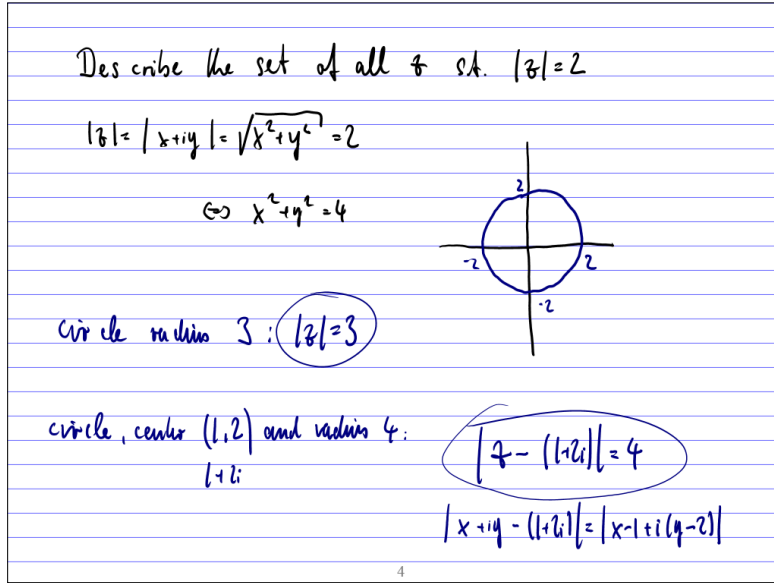 Describe the set of all z s.t. |z|=2
|z|=|x+iy|=√(x²+y²)=2
⇔ x²+y²=4
2
-2
2
-2
circle radius 3: |z|=3
circle, center (1,2) and radius 4:
1+2i
|z-(1+2i)|=4
|x+iy-(1+2i)|=|x-1+i(y-2)|
4